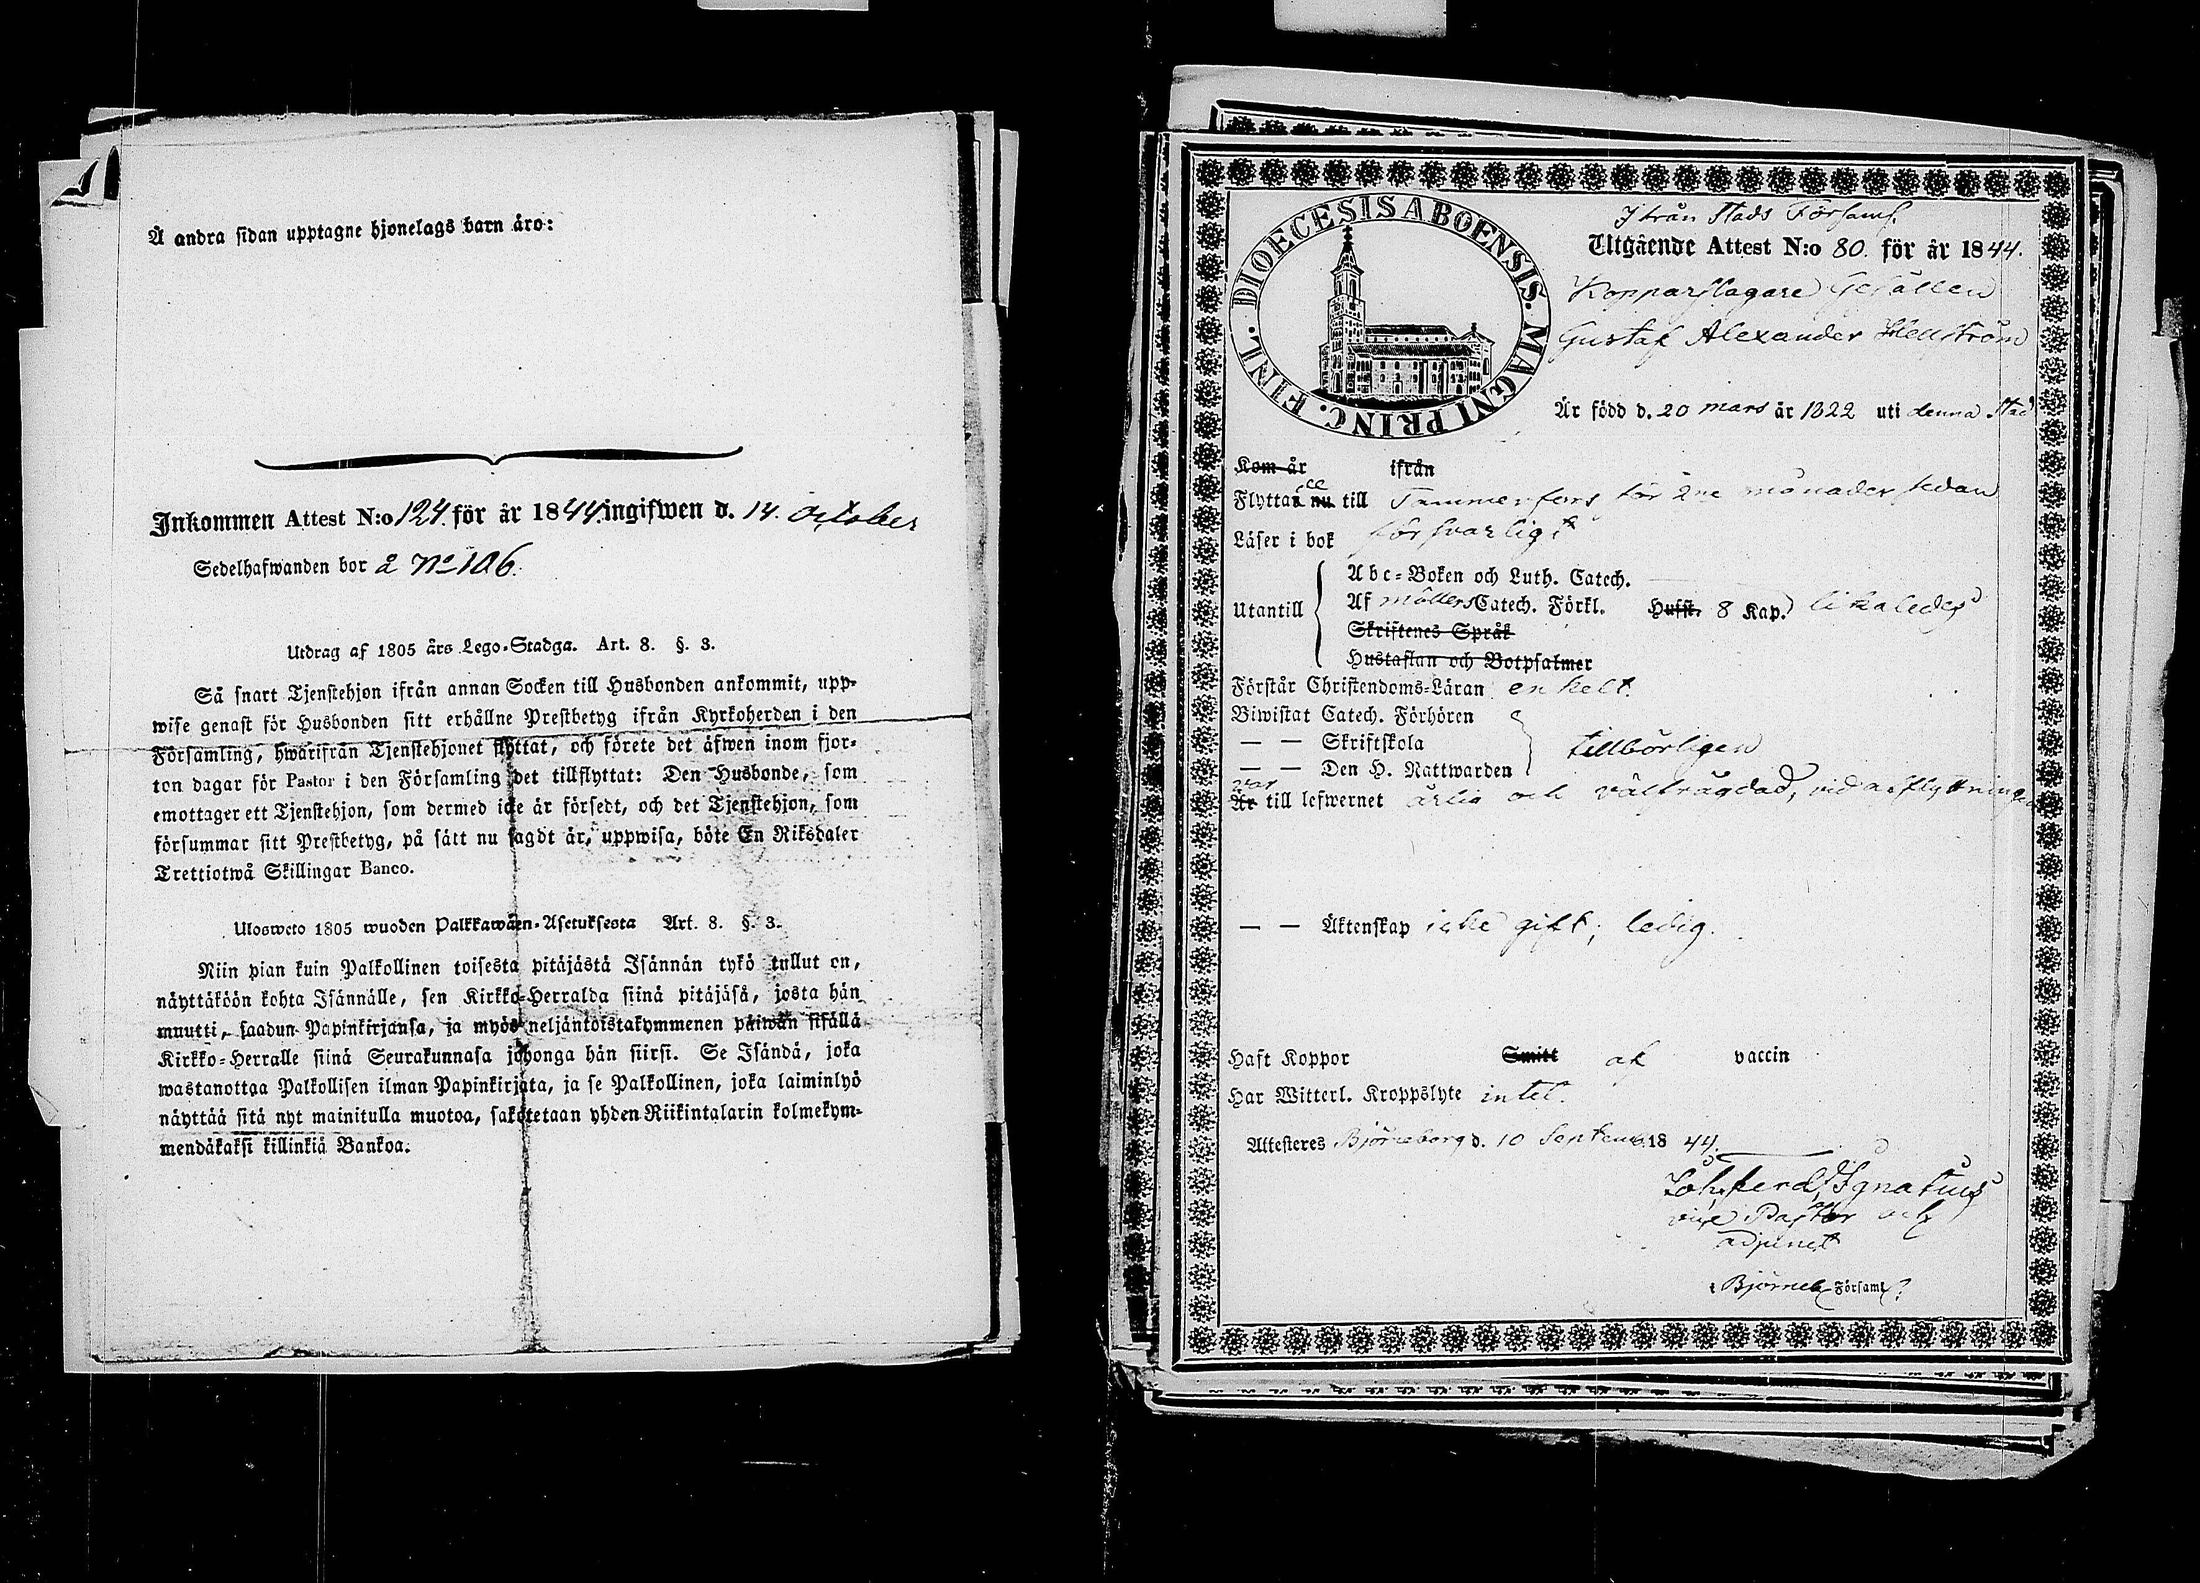 Å andra sidan upptagne hjonelags barn äro:
Inkommen Attest N:o 124. för år 1844. ingifwen d. 14. October
Sedelhafwanden bor 2 No 106.
Utdrag af 1805 års Lego-Stadga. Art. 8. §. 3.
Så snart Tjenstehjon ifrån annan Socken till Husbonden ankommit, upp-
wise genast för Husbonden sitt erhållne Prestbetyg ifrån Kyrkoherden i den
Församling, hwarifrån Tjenstehjonet flyttat, och förete det äfwen inom fjor-
ton dagar för Pastor i den Församling det tillflyttat: Den Husbonde, som
emottager ett Tjenstehjon, som dermed icke är försedt, och det Tjenstehjon, som
försummar sitt Prestbetyg, på sätt nu sagdt är, uppwisa, böte En Riksdaler
Trettiotwå Skillingar Banco.
Ulosweto 1805 wuoden Palkkawäen-Asetuksesta Art. 8. §. 3.
Niin pian kuin Palkollinen toisesta pitäjästä Isännän tykö tullut on,
näyttäköön kohta Isännälle, sen Kirkko-Herralda siinä pitäjäsä, josta hän
muutti, saadun Papinkirjansa, ja myös neljäntoistakymmenen päiwän sisällä
Kirkko-Herralle siinä Seurakunnasa johonga hän siirsi. Se Isändä, joka
wastanottaa Palkollisen ilman Papinkirjata, ja se Palkollinen, joka laiminlyö
näyttää sitä nyt mainitulla muotoa, sakotetaan yhden Riikintalarin kolmekym-
mendäkaksi killinkiä Bankoa.
DIOECESIS ABOENSIS. MAGNI PRINC. FINL.
Ifrån Stads Församl.
Utgående Attest N:o 80. för år 1844.
Kopparslagare Gesällen
Gustaf Alexander Hellström
Är född d. 20 mars år 1822 uti denna Stad
Kom år ifrån
Flyttade nu till Tammerfors för 2ne månader sedan
Läser i bok försvarligt
Utantill
Abc-Boken och Luth. Catech.
Af möllers Catech. Förkl. Husst. 8 Kap. likaledes
Skriftenes Språk
Hustaflan och Botpsalmer
Förstår Christendoms-Läran enkelt.
Biwistat Catech. Förhören
— — Skriftskola tillbörligen
— — Den H. Nattwarden
var
Är till lefwernet ärlig och välfrägdad, vid afflyttningen
— — Äktenskap icke gift; ledig.
Haft Koppor Smitt af vaccin
Har Witterl. Kroppslyte intet.
Attesteres Björneborg d. 10 Septemb. 18 44.
Joh. Ferd. Ignatius
vice Pastor och
adjunct
i Björneb. Församl.